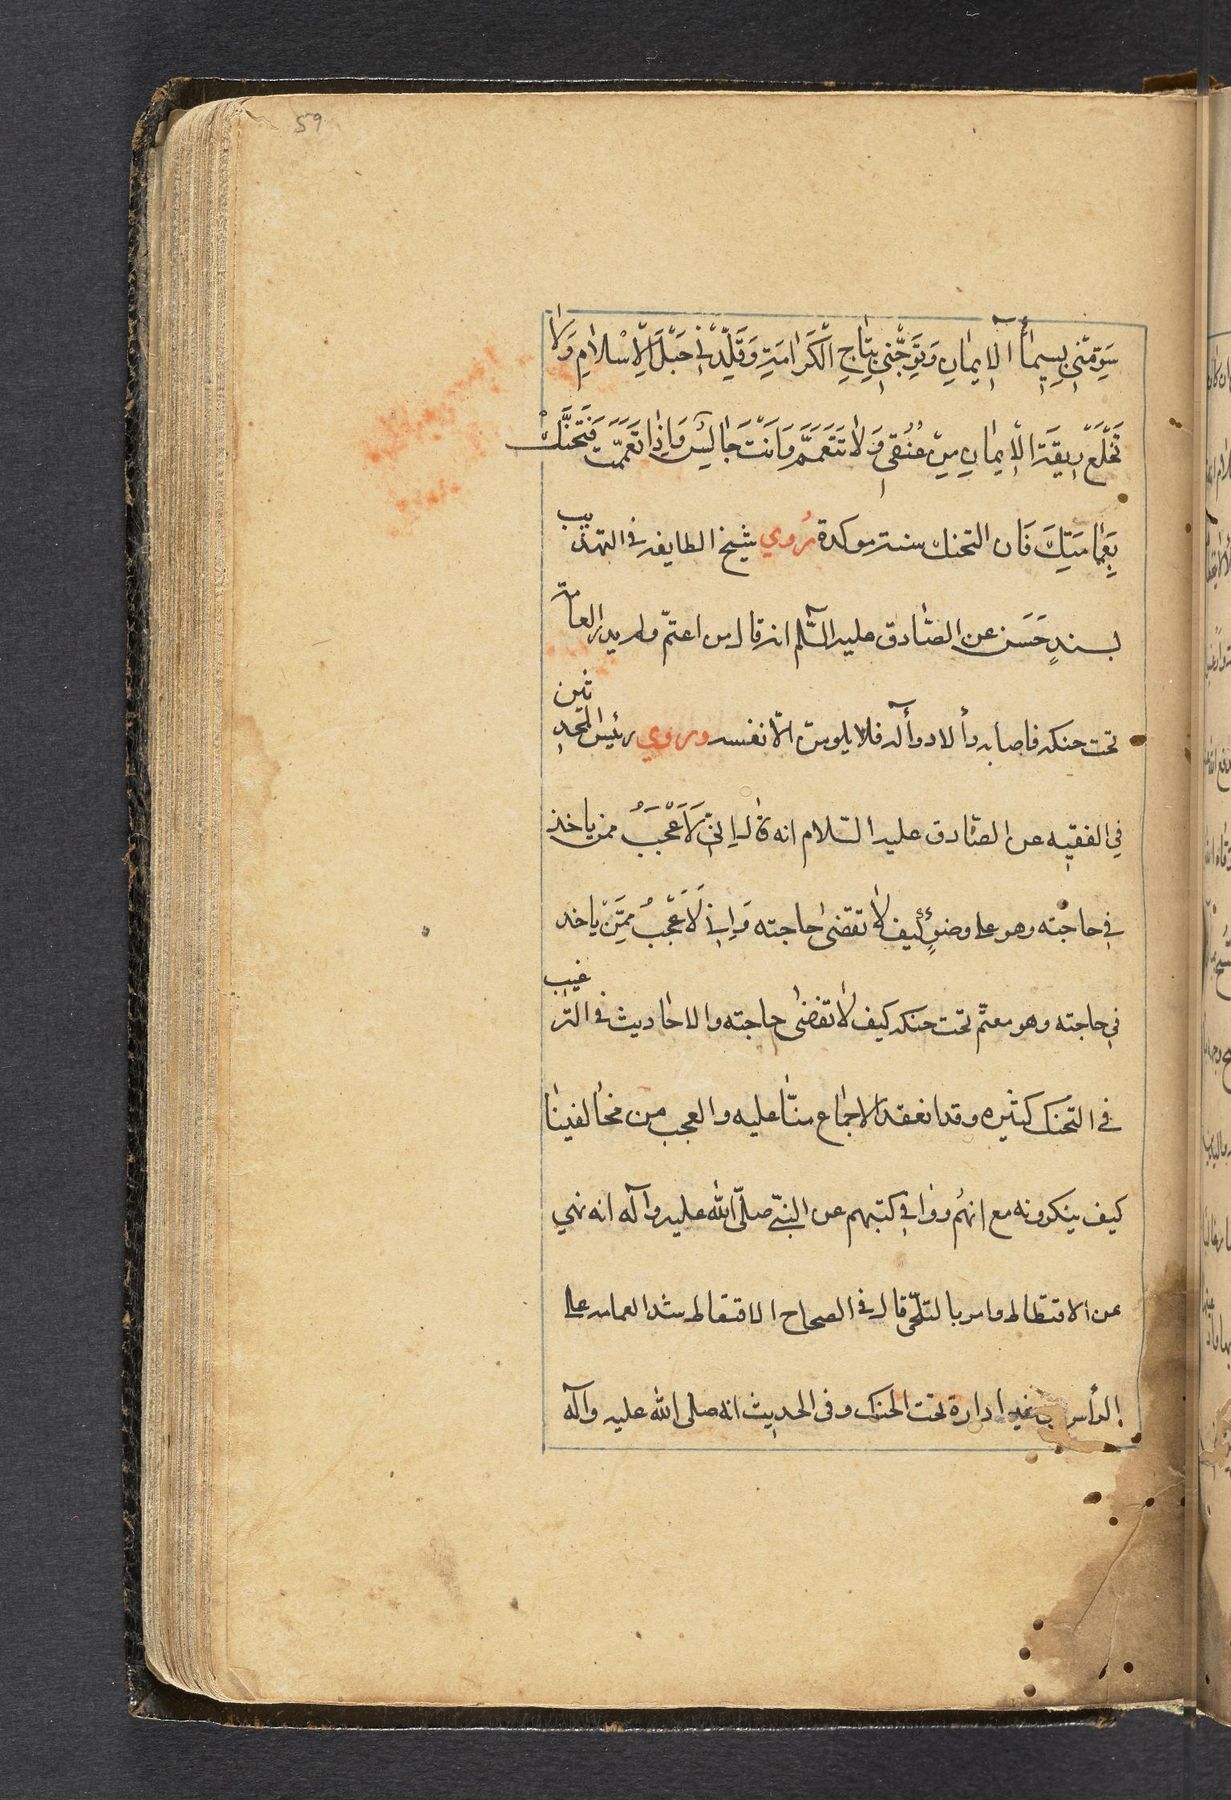 59
سَوِّمْنِي بِسِيمَاءِ الْإِيمَانِ وَتَوِّجْنِي بِتَاجِ الْكَرَامَةِ وَقَلِّدْنِي حَبْلَ الْإِسْلَامِ وَلَا
تَخْلَعْ رِبْقَةَ الْإِيمَانِ مِنْ عُنُقِي وَلَا تَتَعَمَّمْ وَاَنْتَ جَالِسٌ وَاِذَا تَعَمَّمْتَ فَتَحَنَّكْ
بِعِمَامَتِكَ فَان التحنك سنة موكدة رُوي شيخ الطايفه فى التهذيب
بسندٍ حَسَن عن الصّادق عليه السّلم انه قال من اعتمّ ولم يدر العمامة
تحت حنكه فاصابه دألا دوآله فلا يلومنّ الّا نفسه وروي رئيس المحدثين
في الفقيه عن الصّادق عليه السّلام انه قال اِنِّي لَاَعْجَبُ ممن ياخذ
في حاجته وهو على وضوءٍ كيف لا تقضى حاجته وَاِنِّي لَاَعْجَبُ مِمَّنْ ياخذ
في حاجته وهو معتمّ تحت حنكه كيف لا تقضى حاجته والاحاديث فى الترغيب
فى التحنك كثيره وقد انعقد الاجماع منّا عليه والعجب من مخالفينا
كيف ينكرونه مع انهُم رووا فى كتبهم عن النبىّ صلّى الله عليه وآله انه نهي
عن الاقتطاط وامر بالتلحّى قال فى الصحاح الاقتعاط شد العمامه على
الرأس من غير ادارة تحت الحنك وفى الحديث انه صلى الله عليه وآله